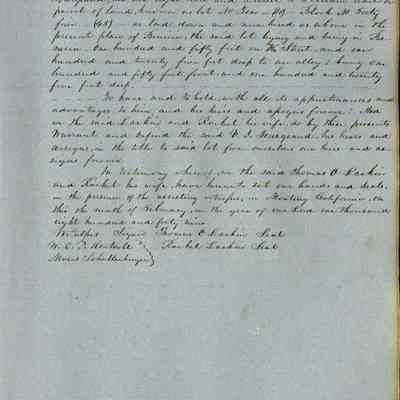 parcel of land, known as lot No. Four 
four (68) — as laid down and numbered as above in the
present plan of Benicia, the said lot lying and being in
One hundred and fifty feet on the Street, and one
hundred and twenty five feet deep to an alley; being one
hundred and fifty feet front and one hundred and twenty
five feet deep.
To have and to hold, with all its appurtenances and
advantages to him, and his heirs and assigns forever; And
we the said Larkin and Rachel his wife do by these presents
Warrant and defend the said his heirs and
assigns, in the title to said lot from ourselves our heirs and as-
signs forever.
In testimony whereof, we the said Thomas O Larkin
and Rachel his wife, have hereunto set our hands and seals,
in the presence of the witnesses, in Monterey California, on
this the of February, in the year of our Lord one thousand
eight hundred and forty nine
Witness Signed Thomas O Larkin Seal
W. E. P. Hartnell Rachel Larkin Seal
Moses Schallenberger